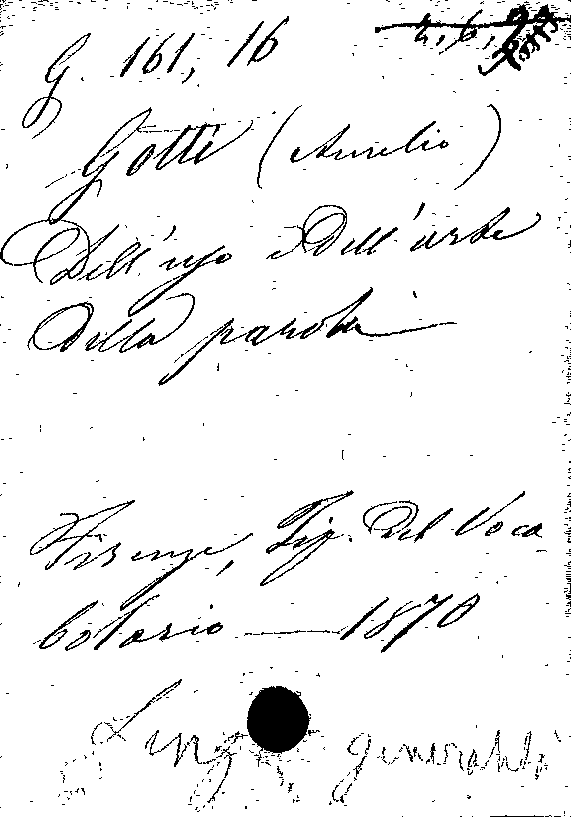 G. 161, 16
Gotti (Aurelio)
Dell'uso e Dell'arte
Della parola
Firenze, Tip. Del Voca
bolario — 1870
generalità